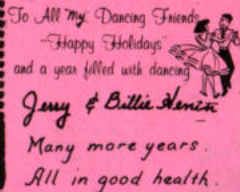 To All My Dancing Friends
"Happy Holidays"
and a year filled with dancing
Jerry & Billie Henin
Many more years.
All in good health.